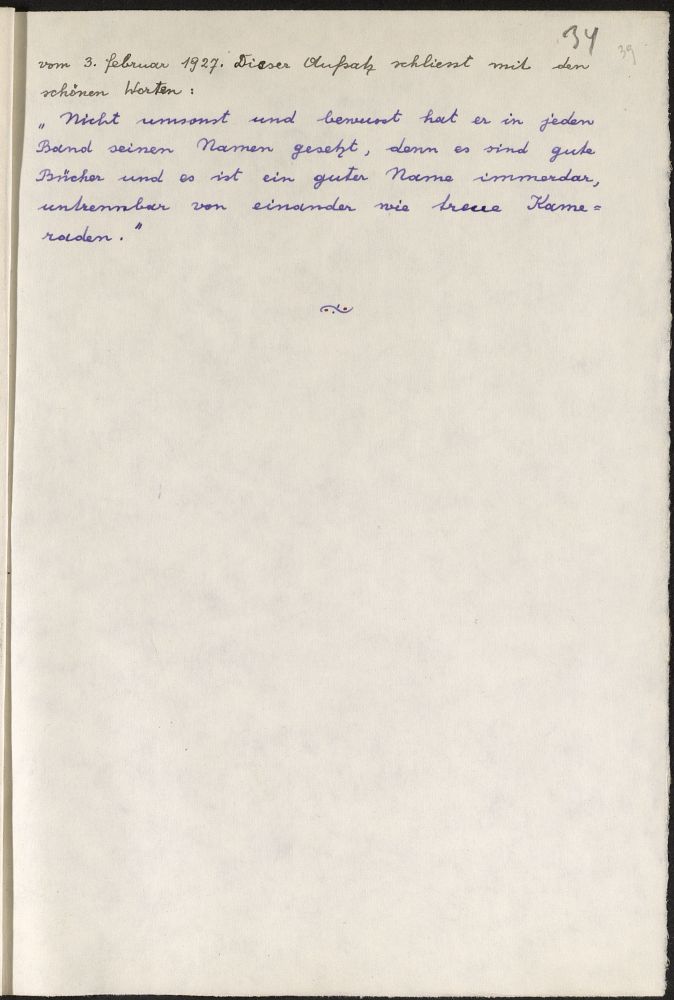 34
39
vom 3. Februar 1927. Dieser Aufsatz schliesst mit den
schönen Worten :
„ Nicht umsonst und bewusst hat er in jeden
Band seinen Namen gesetzt, denn es sind gute
Bücher und es ist ein guter Name immerdar,
untrennbar von einander wie treue Kame=
raden . "